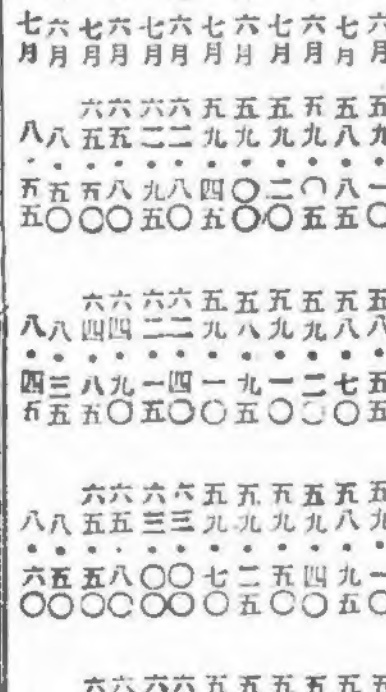 六月 五九・一〇 五八・五〇 五九・一〇 五
七月 五八・八五 五八・七〇 五八・九五 五
六月 五九・〇五 五九・二〇 五九・四〇 五
七月 五九・二〇 五九・一〇 五九・五〇 五
六月 五九・〇〇 五八・九五 五九・二五 五
七月 五九・四五 五九・一〇 五九・七〇 五
六月 六二・八〇 六二・四〇 六三・〇〇 六
七月 六二・九五 六二・一五 六三・〇〇 六
六月 六五・八〇 六四・九〇 六五・八〇 六
七月 六五・五〇 六四・八五 六五・五〇 六
六月 八・五〇 八・三五 八・五〇
七月 八・五五 八・四五 八・六〇